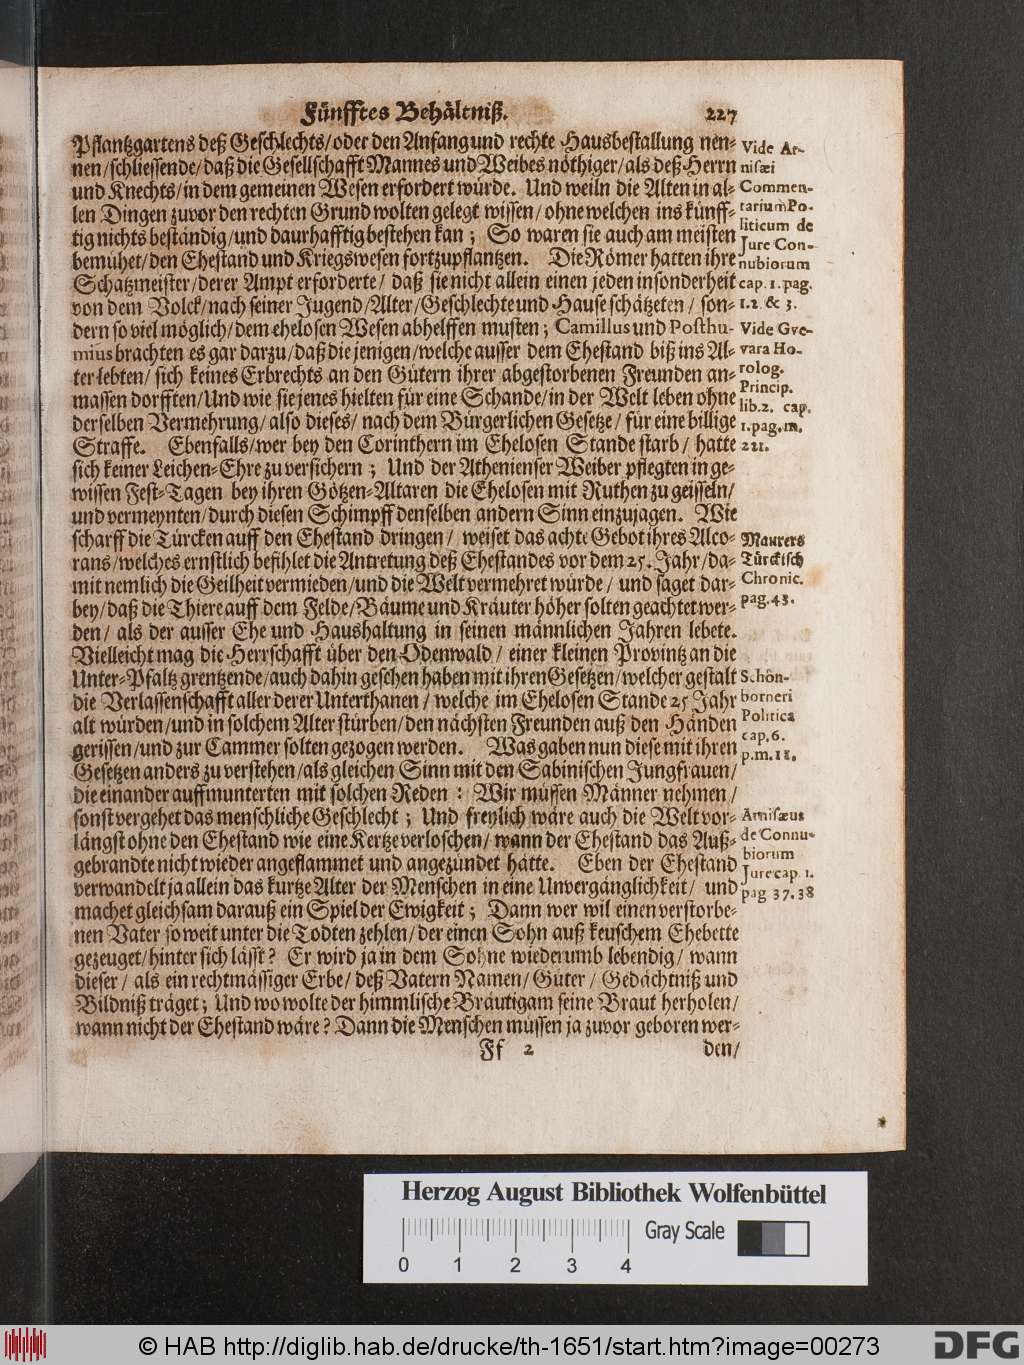 Fünfftes Behältniß. 227
Pflantzgartens deß Geschlechts/oder den Anfang und rechte Hausbestallung nen-
nen/schliessende/daß die Gesellschafft Mannes und Weibes nöthiger/als deß Herrn
und Knechts/in dem gemeinen Wesen erfordert würde. Und weiln die Alten in al-
len Dingen zuvor den rechten Grund wolten gelegt wissen/ohne welchen ins künff-
tig nichts beständig/und daurhafftig bestehen kan; So waren sie auch am meisten
bemühet/den Ehestand und Kriegswesen fortzupflantzen. Die Römer hatten ihre
Schatzmeister/derer Ampt erforderte/ daß sie nicht allein einen jeden insonderheit
von dem Volck/nach seiner Jugend/Alter/Geschlechte und Hause schätzeten/ son-
dern so viel möglich/dem ehelosen Wesen abhelffen musten; Camillus und Posthu-
mius brachten es gar darzu/daß die jenigen/welche ausser dem Ehestand biß ins Al-
ter lebten/ sich keines Erbrechts an den Gütern ihrer abgestorbenen Freunden an-
massen dorfften/Und wie sie jenes hielten für eine Schande/in der Welt leben ohne
derselben Vermehrung/also dieses/ nach dem Bürgerlichen Gesetze/ für eine billige
Straffe. Ebenfalls/wer bey den Corinthern im Ehelosen Stande starb/ hatte
sich keiner Leichen-Ehre zu versichern; Und der Athenienser Weiber pflegten in ge-
wissen Fest-Tagen bey ihren Götzen-Altaren die Ehelosen mit Ruthen zu geisseln/
und vermeynten/durch diesen Schimpff denselben andern Sinn einzujagen. Wie
scharff die Türcken auff den Ehestand dringen/ weiset das achte Gebot ihres Alco-
rans/welches ernstlich befihlet die Antretung deß Ehestandes vor dem 25. Jahr/da-
mit nemlich die Geilheit vermieden/und die Welt vermehret würde/ und saget dar-
bey/daß die Thiere auff dem Felde/Bäume und Kräuter höher solten geachtet wer-
den/ als der ausser Ehe und Haushaltung in seinen männlichen Jahren lebete.
Vielleicht mag die Herrschafft über den Odenwald/ einer kleinen Provintz an die
Unter-Pfaltz grentzende/auch dahin gesehen haben mit ihren Gesetzen/welcher gestalt
die Verlassenschafft aller derer Unterthanen/ welche im Ehelosen Stande 25 Jahr
alt würden/und in solchem Alter stürben/den nächsten Freunden auß den Händen
gerissen/und zur Cammer solten gezogen werden. Was gaben nun diese mit ihren
Gesetzen anders zu verstehen/als gleichen Sinn mit den Sabinischen Jungfrauen/
die einander auffmunterten mit solchen Reden: Wir müssen Männer nehmen/
sonst vergehet das menschliche Geschlecht; Und freylich wäre auch die Welt vor-
längst ohne den Ehestand wie eine Kertze verloschen/ wann der Ehestand das Auß-
gebrandte nicht wieder angeflammet und angezündet hätte. Eben der Ehestand
verwandelt ja allein das kurtze Alter der Menschen in eine Unvergänglichkeit/ und
machet gleichsam darauß ein Spiel der Ewigkeit; Dann wer wil einen verstorbe-
nen Vater so weit unter die Todten zehlen/der einen Sohn auß keuschem Ehebette
gezeuget/hinter sich lässt? Er wird ja in dem Sohne wiederumb lebendig/ wann
dieser/ als ein rechtmässiger Erbe/ deß Vatern Namen/Güter/ Gedächtniß und
Bildniß träget; Und wo wolte der himmlische Bräutigam seine Braut herholen/
wann nicht der Ehestand wäre? Dann die Menschen müssen ja zuvor geboren wer-
Ff 2 den/
Vide Ar-
nisæi
Commen-
tarium Po-
liticum de
Jure Con-
nubiorum
cap. 1. pag.
1.2. & 3.
Vide Gve-
vara Ho-
rolog.
Princip.
lib. 2. cap.
1. pag. m.
221.
Maurers
Türckisch
Chronic.
pag. 43.
Schön-
borneri
Politica
cap. 6.
p. m. 18.
Arnisæus
de Connu-
biorum
Jure cap. 1.
pag 37.38
Herzog August Bibliothek Wolfenbüttel
Gray Scale
0 1 2 3 4
© HAB http://diglib.hab.de/drucke/th-1651/start.htm?image=00273
DFG